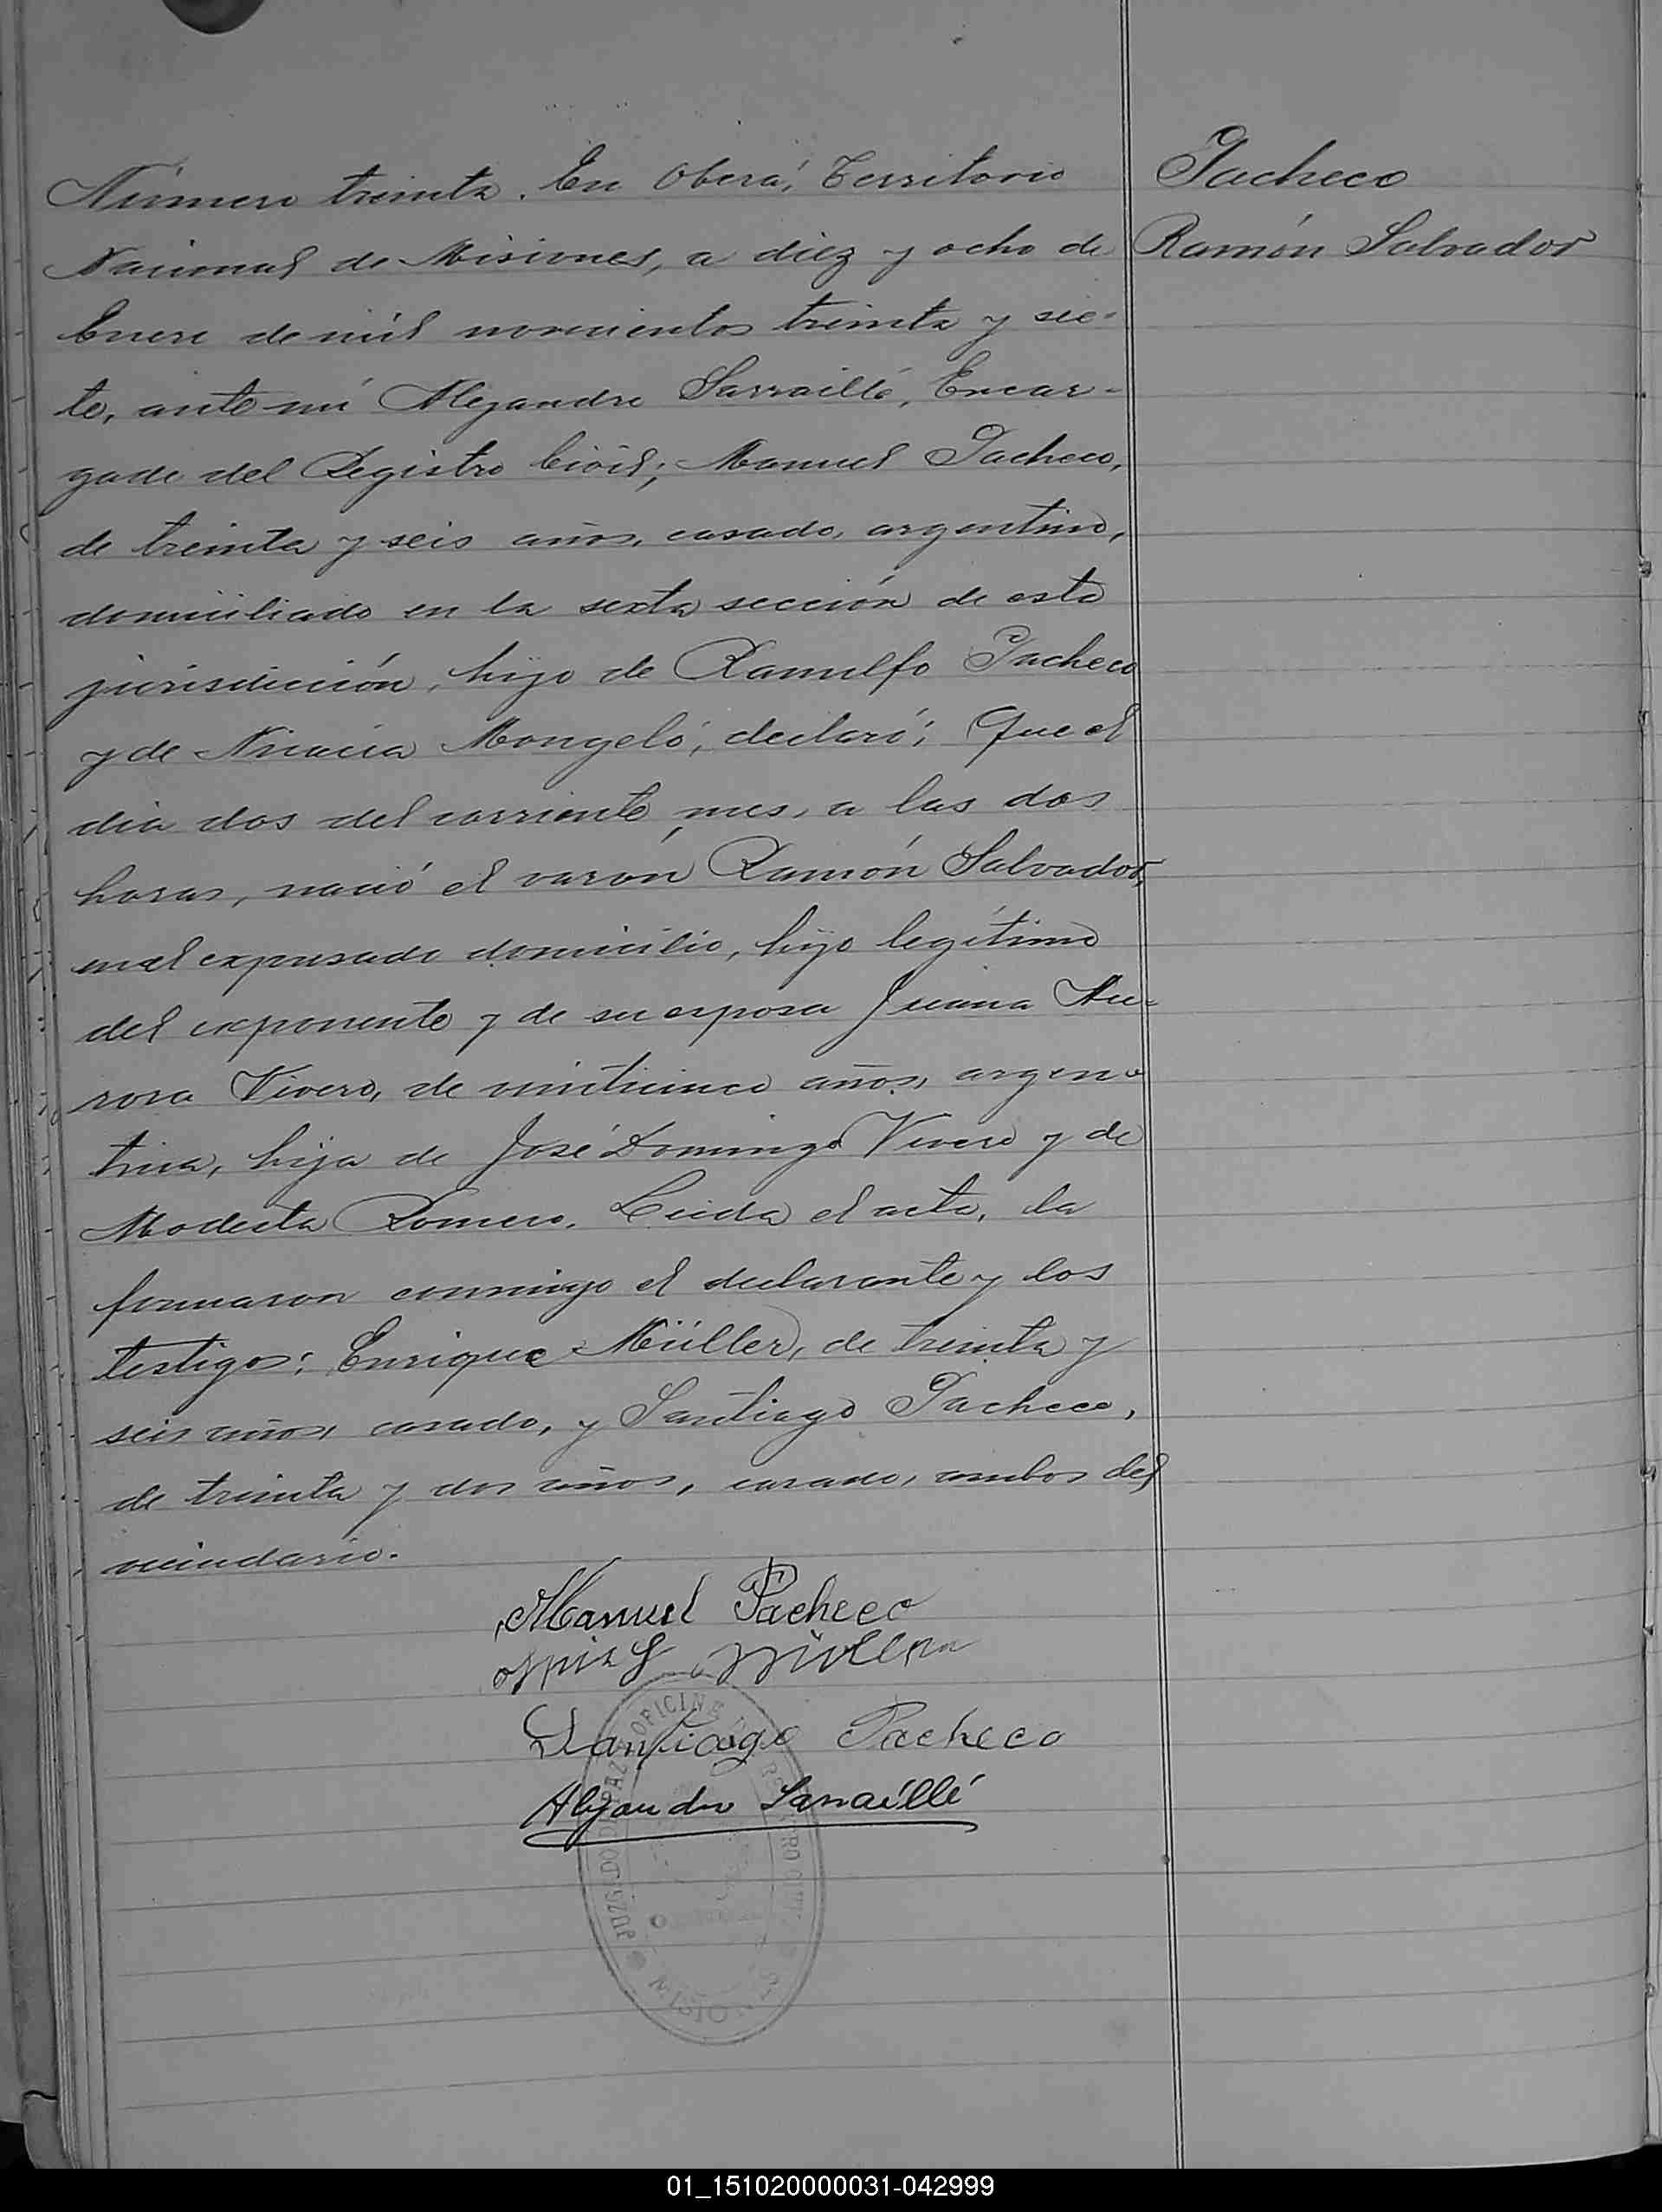 Número treinta. En Oberá, Territorio
Nacional de Misiones, a diez y ocho de
Enero de mil novecientos treinta y sie-
te, ante mí Alejandro Sarraillé, Encar-
gado del Registro Civil; Manuel Pacheco,
de treinta y seis años, casado, argentino,
domiciliado en la sexta sección de esta
jurisdicción, hijo de Ranulfo Pacheco
y de Nicacia Mongeló, declaró: Que el
dia dos del corriente mes, a las dos
horas, nació el varón Ramón Salvador,
en el expresado domicilio, hijo legítimo
del exponente y de su esposa Juana Au-
rora Vivero, de veinticinco años, argen-
tina, hija de José Domingo Vivero y de
Modesta Romero. Leida el acta, la
firmaron conmigo el declarante y los
testigos: Enrique Müller, de treinta y
seis años, casado, y Santiago Pacheco,
de treinta y dos años, casado, ambos del
vecindario.
Pacheco
Ramón Salvador
Manuel Pacheco
Santiago Pacheco
Alejandro Sarraillé
JUZGADO DE PAZ OFICINA REGISTRO CIVIL
01_151020000031-042999